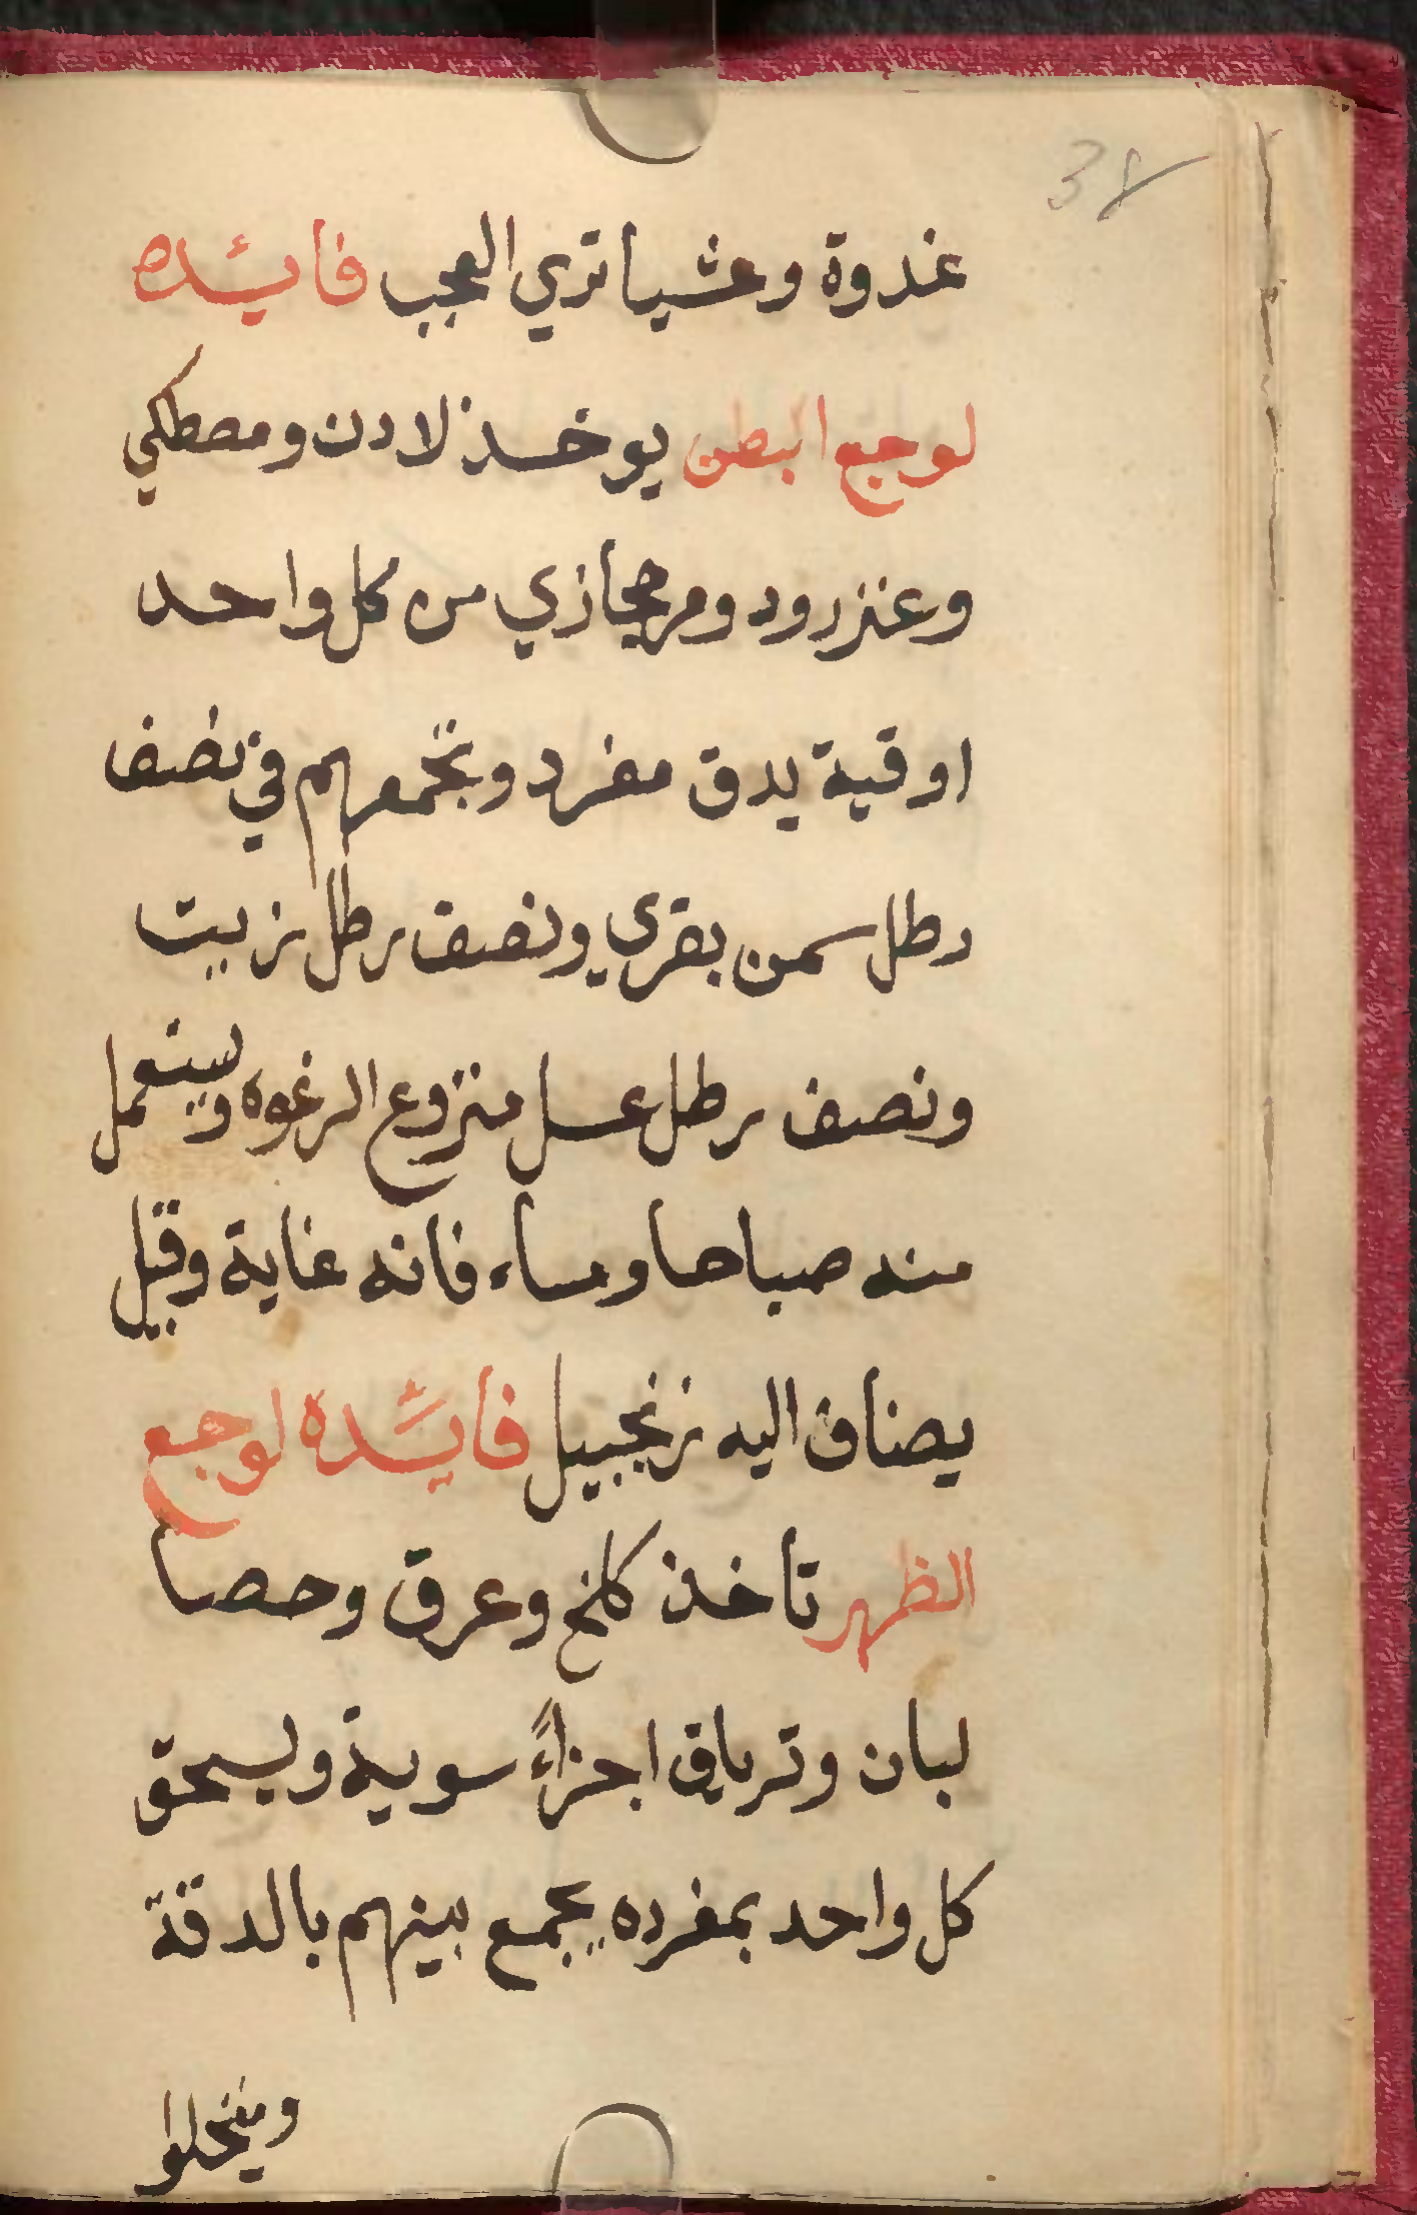 38
غدوة وعشيا تري العجب فايئده
لوجع البطن يوخذ لادن ومصطكي
وعنزرود ومر حجازي من كل واحد
اوقية يدق مفرد وتجمعهم في نصف
رطل سمن بقري ونصف رطل زيت
ونصف رطل عسل منزوع الرغوه ويستعمل
منه صباحا ومساء فانه غاية وقيل
يضاف اليه زنجبيل فايئده لوجع
الظهر تاخذ كلخ وعرق وحصا
لبان وترياق اجزاءً سوية ويسحق
كل واحد بمفرده يجمع بينهم بالدقة
وينخلوا